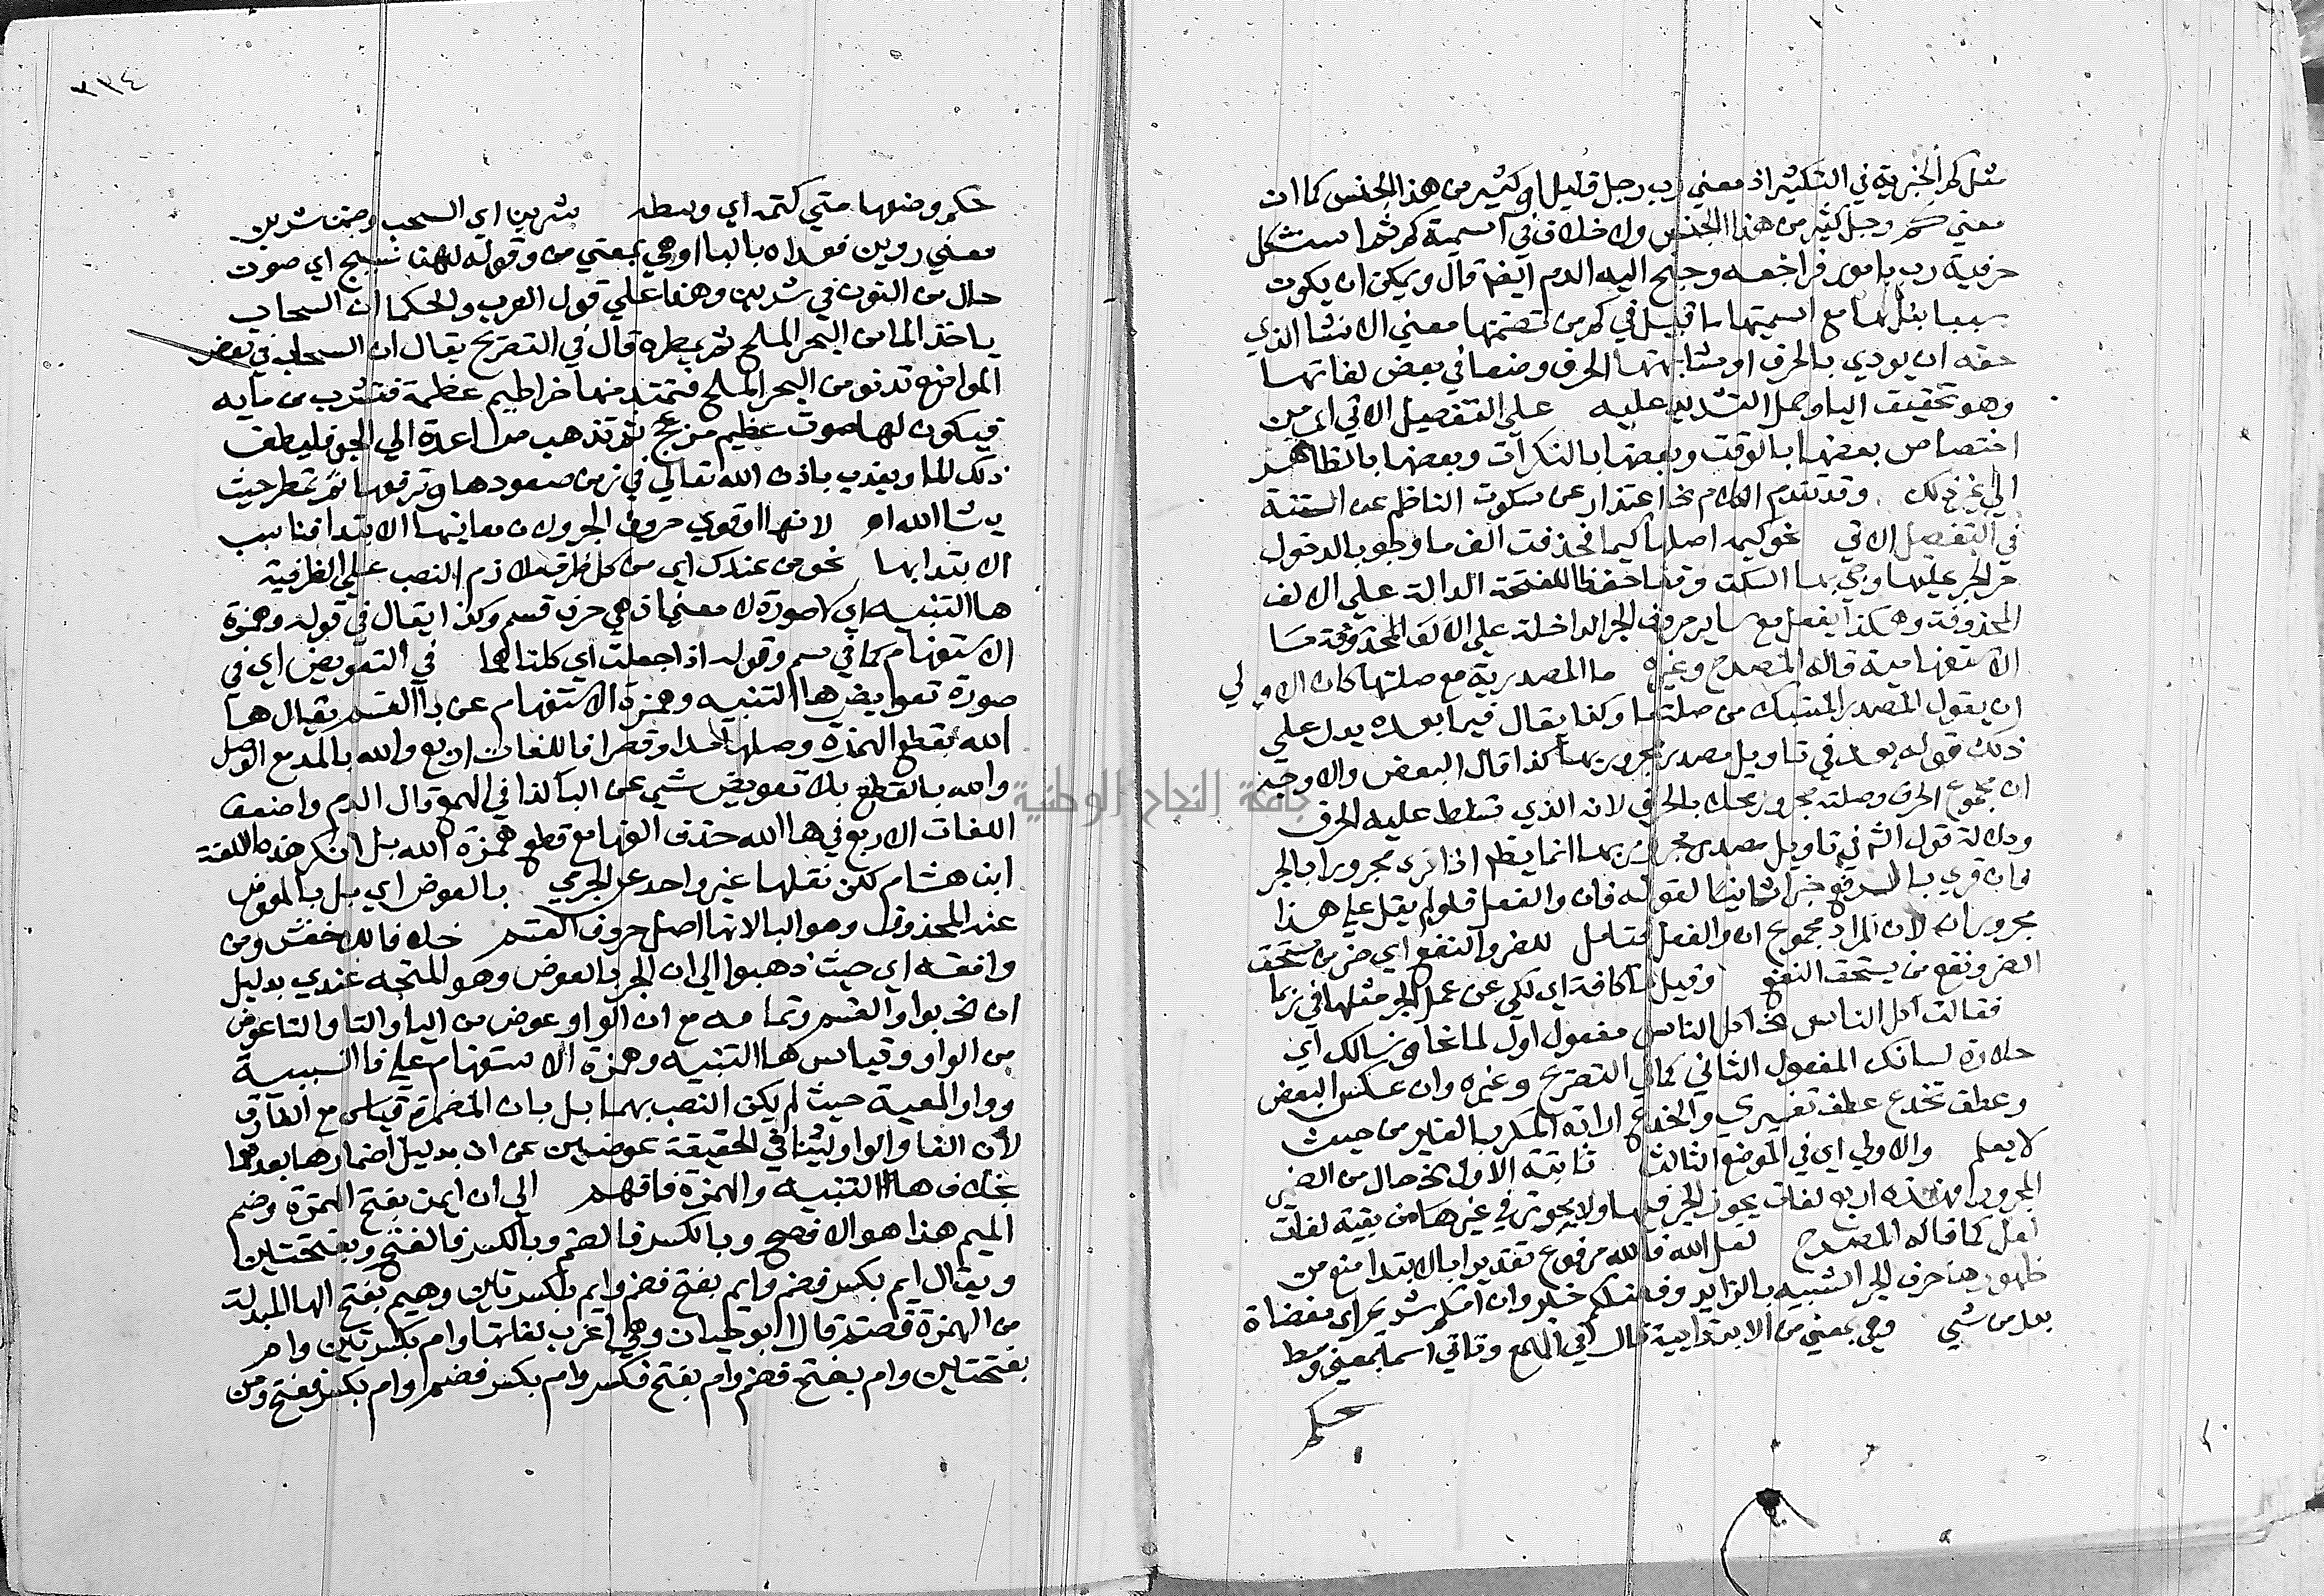 مثل كم الخبرية في التكثير اذ معني رب رجل قليل او كثير من هذا الجنس كما ان
معني كم رجل كثير من هذا الجنس ولا خلاف في اسمية كم ثم استشكل
حرفية رب بامور فراجعه وجنح اليه الدم ايضا قال ويمكن ان يكون
سببا بنائها مع اسميتها ما قيل في كم من تضمنها معني الانشا الذي
حقه ان يودي بالحرف او مشابهتها الحرف وضعا في بعض لغاتها
وهو تخفيف البا وحمل التشديد عليه علي التفصيل الاتي اي من
اختصاص بعضها بالوقت وبعضها بالنكرات وبعضها بالظاهر
الي غير ذلك وقد تقدم الكلام اعتذار عن سكوت الناظم عن الستة
في التفصيل الاتي نحو كيمه اصلها كيما فحذفت الف ما وجوبا لدخول
حرف الجر عليها وجي بها السكت وقفا حفظا للفتحة الدالة علي الالف
المحذوفة وهكذا يفعل مع ساير حروف الجر الداخلة علي الالف المحذوفة ما
الاستفهامية قاله المصرح وغيره ما المصدرية مع صلتها كان الاولي
ان يقول المصدر المنسبك من صلتها وكذا يقال فيما بعده يدل علي
ذلك قوله بعد في تاويل مصدر مجرور بها كذا قال البعض والاوجه
ان مجموع الحرف وصلته مجرور محلا بالحرف لانه الذي تسلط عليه الحرف
ودلالة قول الش في تاويل مصدر مجرور بها انما يظهر اذا قري مجرورا بالجر
فان قري بالرفع خبرا ثانيا لقوله فان والفعل فلا ولم يقل علي هذا
مجروران لان المراد مجموع ان والفعل فتامل للضر والنفع اي ضر من يستحق
الضر ونفع من يستحق النفع وقيل ما كافة اي لكي عن عمل الجر مثلها في ربما
فقالت اكل الناس اكل الناس مفعول اول لمانحا ولسانك اي
حلاوة لسانك المفعول الثاني كما في التصريح وغيره وان عكس البعض
وعطف تخدع عطف تفسيري والخدع ارادة المكر بالغير من حيث
لا يعلم والاولي اي في الموضع الثالث ثابتة الاول حال من الضمير
المجرور فهذه اربع لغات يجوز الجر فيها ولا يجوز في غيرها من بقية لغات
لعل كما قاله المصرح لعل الله فالله مرفوع تقديرا بالابتدا منع من
ظهورها حرف الجر الشبيه بالزايد وفضلكم خبر وان امكم شريم اي مفضاة
بدل من شي وهي بمعني من الابتدايية قال في الهمع وتاتي اسما بمعني وسط
حكي
٢٣٤
حكي وضعها متي كمه اي وسطه شربن اي السحب وضمن شربن
معني روين فعداه بالبا او هي بمعني من وقوله لهن نئيج اي صوت
حال من النون في شربن وهذا علي قول العرب والحكما ان السحاب
ياخذ الما من البحر الملح ثم يمطره قال في التصريح يقال ان السحاب في بعض
المواضع تدنو من البحر الملح فتمتد منها خراطيم عظيمة فتشرب من مايه
فيكون لها صوت عظيم مزعج ثم تذهب صاعدة الي الجو فيلطف
ذلك الما ويعذب باذن الله تعالي في زمن صعودها وترفعها ثم تمطر حيث
يشا الله اه لانها اقوي حروف الجر ولان معانيها الابتدا فناسب
الابتدا بها نحو من عندك اي من كل ظرف ملازم النصب علي الظرفية
ها التنبيه اي صورة لا معني اذ هي حرف قسم وكذا يقال في قوله وهمزة
الاستفهام كما في سم وقوله اذا جعلت اي كلتاهما في التعويض اي في
صورة تعويض ها التنبيه وهمزة الاستفهام عن با القسم يقال ها
الله بقطع الهمزة ووصلها مدا وقصرا فاللغات اربع والله بالمد مع الوصل
والله بالقطع بلا تعويض شي عن البا كذا في الهمع قال الدم واضعف
اللغات الاربع في ها الله حذف الفها مع قطع همزة الله بل انكر هذه اللغة
ابن هشام لكن نقلها غير واحد عن الجرمي بالعوض اي بل بالمعوض
عنه المحذوف وهو البا لانها اصل حروف القسم خلافا للاخفش ومن
وافقه اي حيث ذهبوا الي ان الجر بالعوض وهو المتجه عندي بدليل
ان الجر بواو القسم وتا مه مع ان الواو عوض من البا والتا والتا عوض
من الواو وقياس ها التنبيه وهمزة الاستفهام علي فا السببية
وواو المعية حيث لم يكن النصب بهما بل بان المضمرة قياس مع الفارق
لان الفا والواو ليستا في الحقيقة عوضين عن ان بدليل اضمارها بعدهما
بخلاف ها التنبيه والهمزة فافهم الي ان ايمن بفتح الهمزة وضم
الميم هذا هو الافصح وبالكسر فالضم وبالكسر فالفتح وبفتحتين
ويقال ايم بكسر فضم وايم بفتح فضم وايم بكسرتين وهيم بفتح الها المبدلة
من الهمزة فضمة قال ابو حيان وهي اغرب لغاتها وام بكسرتين وام
بفتحتين وام بفتح فضم وام بفتح فكسر وام بكسر فضم وام بكسر ففتح ومن
جامعة النجاح الوطنية